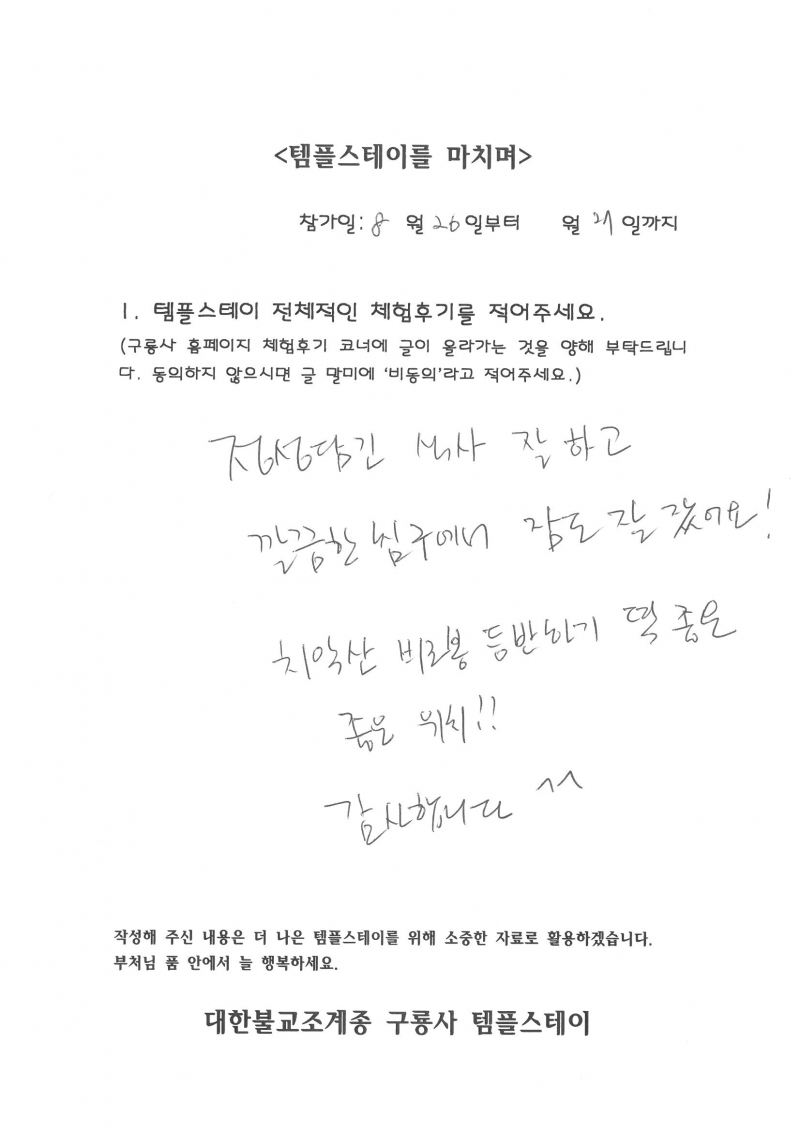 <템플스테이를 마치며>
참가일: 8 월 26 일부터 월 27 일까지
1. 템플스테이 전체적인 체험후기를 적어주세요.
(구룡사 홈페이지 체험후기 코너에 글이 올라가는 것을 양해 부탁드립니
다. 동의하지 않으시면 글 말미에 '비동의'라고 적어주세요.)
정성담긴 식사 잘 하고
깔끔한 침구에서 잠도 잘 잤어요!
치악산 비로봉 등반하기 딱 좋은
좋은 위치!!
감사합니다 ^^
작성해 주신 내용은 더 나은 템플스테이를 위해 소중한 자료로 활용하겠습니다.
부처님 품 안에서 늘 행복하세요.
대한불교조계종 구룡사 템플스테이